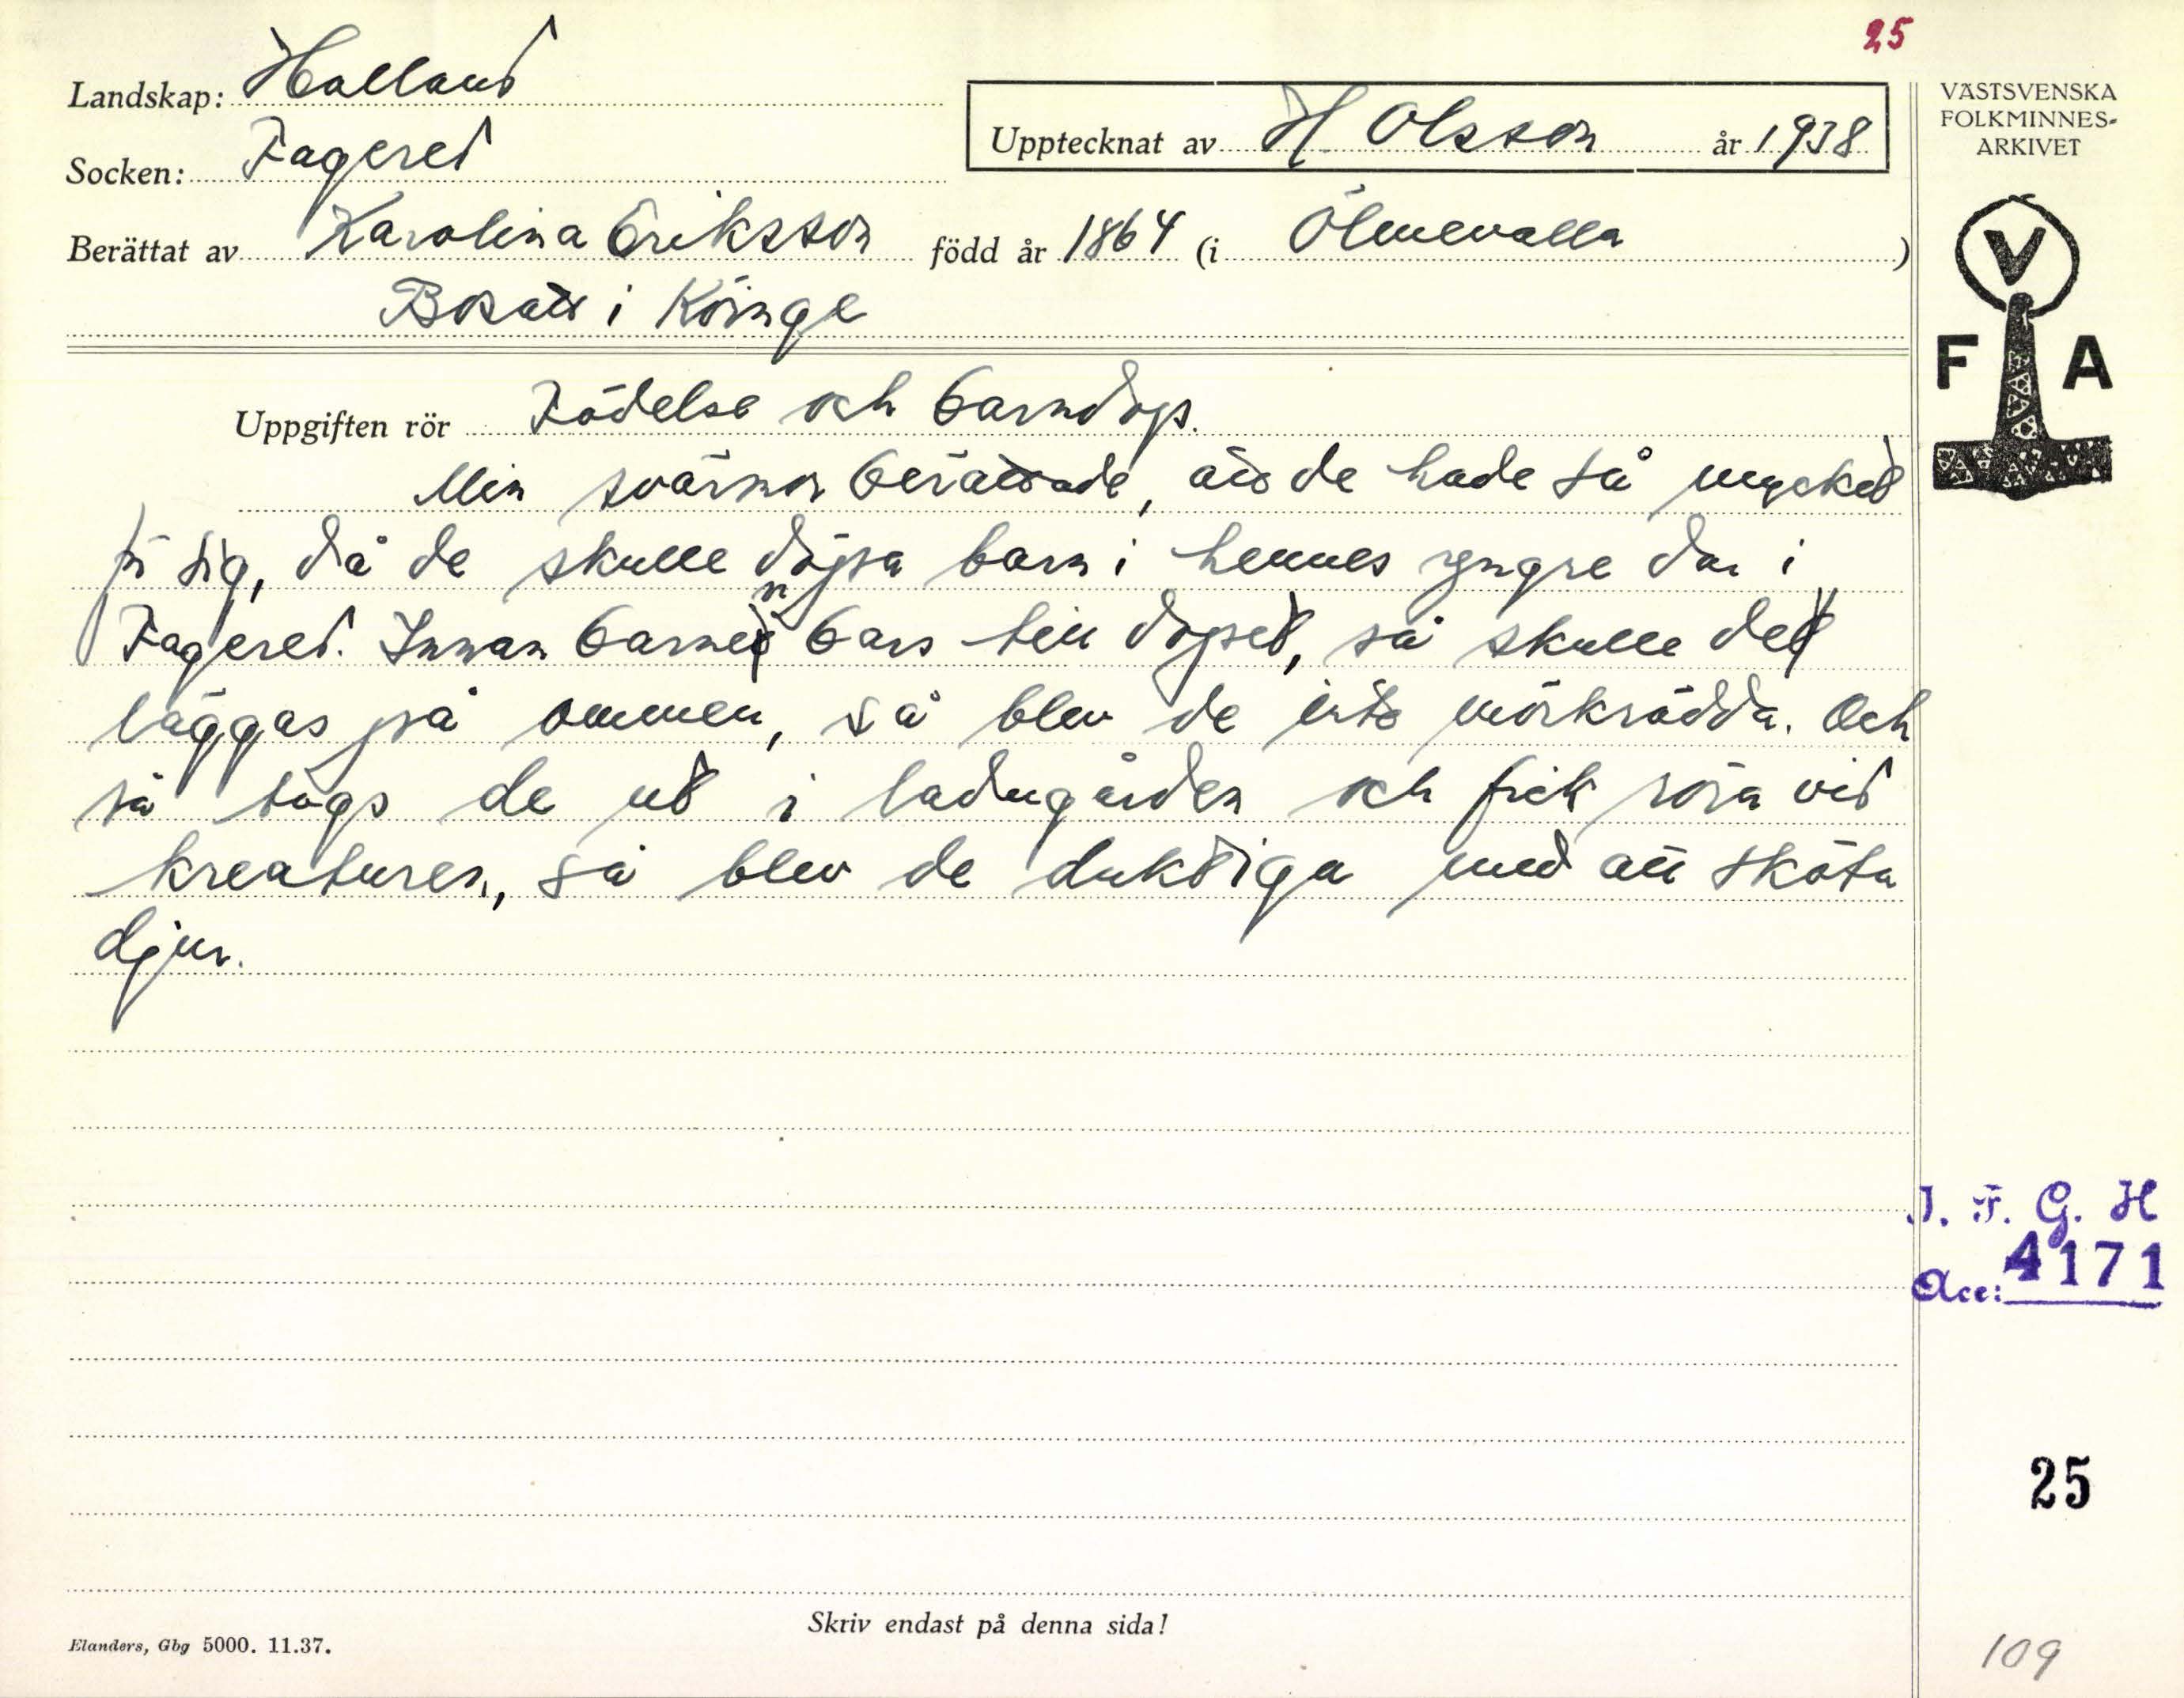 25
Landskap: Halland
Socken: Fagered
Upptecknat av H Olsson år 1938
VÄSTSVENSKA
FOLKMINNES-
ARKIVET
Berättat av Karolina Eriksson född år 1864 (i Ölmevalla)
Bosatt i Köinge
V
F A
Uppgiften rör Födelse och barndop.
Min svärmor berättade, att de hade så mycket
för sig, då de skulle döpa barn i hennes yngre dar i
Fagered. Innan barnen bars till dopet, så skulle de
läggas på ommen, så blev de inte mörkrädda. Och
så togs de ut i ladugården och fick röra vid
kreaturen, så blev de duktiga med att sköta
djur.
I. F. G. H
Acc: 4171
25
Skriv endast på denna sida!
Elanders, Gbg 5000. 11.37.
109